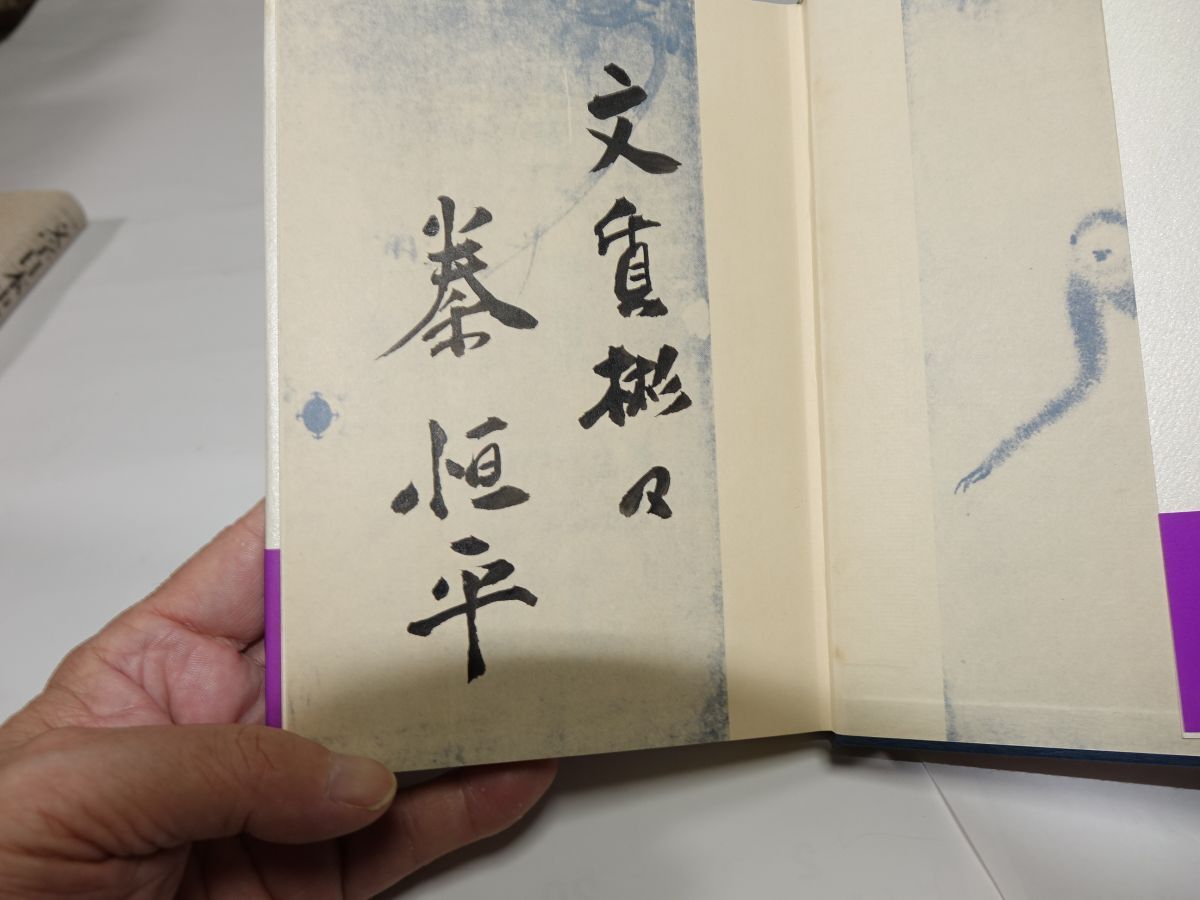 文質彬々
秦恒平